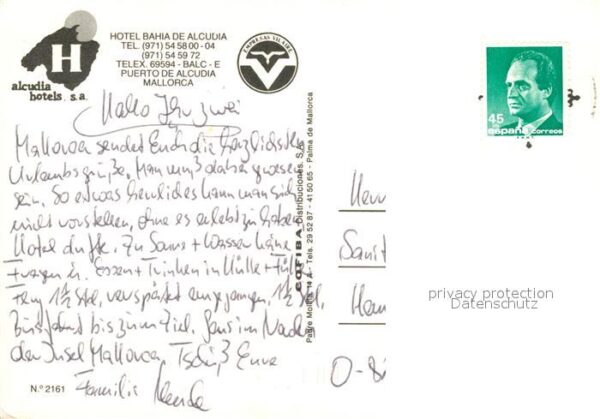 HOTEL BAHIA DE ALCUDIA
TEL. (971) 54 58 00 - 04
(971) 54 59 72
TELEX. 69594 - BALC - E
PUERTO DE ALCUDIA
MALLORCA
H
alcudia
hotels, s.a.
EMPRESAS SILAIRE
Hallo Ihr zwei
Mallorca sendet Euch die herzlichsten
Urlaubsgrüße, Man muß dabei gewesen
sein. So etwas herrliches kann man sich
nicht vorstellen, ohne es erlebt zu haben.
Hotel dufte. Zu Sonne + Wasser keine
Fragen. Essen + Trinken in Hülle + Fülle
1½ Std. verspätet 1½ Std.
Busfahrt bis zum Ziel. Ganz im Norden
der Insel Mallorca. Tschüß Eure
Familie
N.º 2161
COFIBA Distribuciones, S.A.
Padre Molina 14 A - Tels. 29 52 87 - 41 50 65 - Palma de Mallorca
45
españa correos
Sanit
O-8
privacy protection
Datenschutz